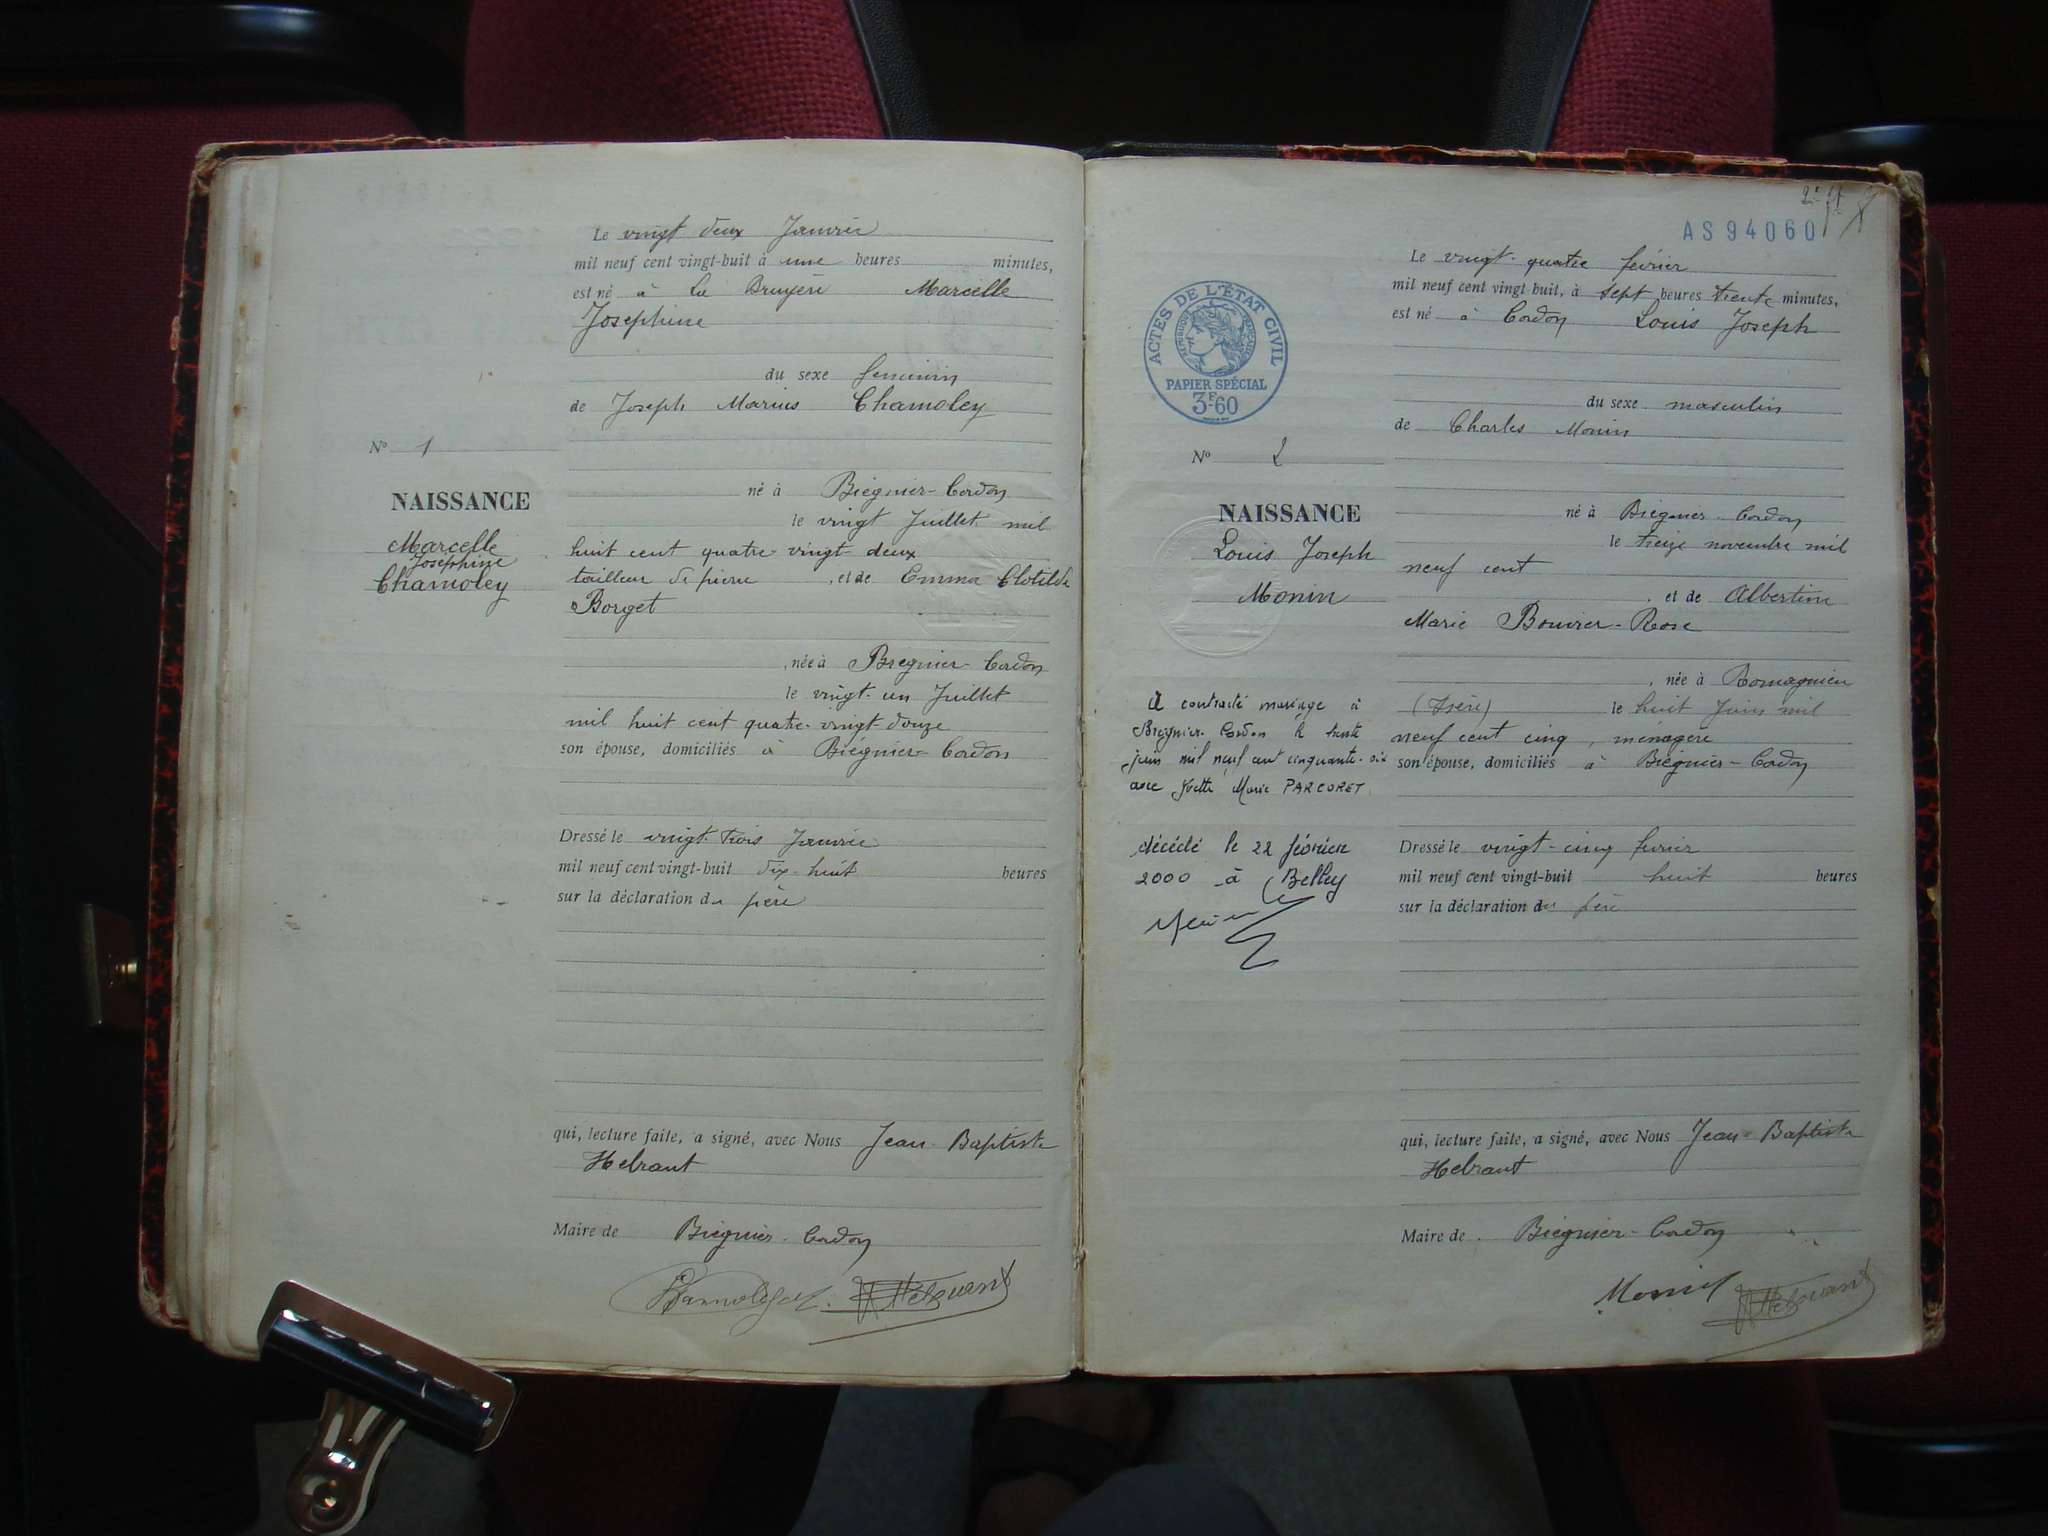 Le vingt deux Janvier
mil neuf cent vingt-huit à une heures minutes,
est né à La Bruyère Marcelle
Josephine
du sexe feminin
de Joseph Marius Chamoley
N° 1
NAISSANCE
Marcelle
Joséphine
Chamoley
né à Brégnier-Cordon
le vingt Juillet mil
huit cent quatre-vingt-deux
tailleur de pierre, et de Emma Clotilde
Borget
, née à Bregnier-Cordon
le vingt-un Juillet
mil huit cent quatre-vingt douze
son épouse, domiciliés à Brégnier-Cordon
Dressé le vingt-trois Janvier
mil neuf cent vingt-huit dix-huit heures
sur la déclaration du père
qui, lecture faite, a signé, avec Nous Jean-Baptiste
Hebrant
Maire de Brégnier-Cordon
AS94060
Le vingt-quatre février
mil neuf cent vingt huit, à sept heures trente minutes,
est né à Cordon Louis Joseph
ACTES DE L'ÉTAT CIVIL
RÉPUBLIQUE FRANÇAISE
PAPIER SPÉCIAL
3F60
du sexe masculin
de Charles Monin
N° 2
NAISSANCE
Louis Joseph
Monin
né à Brégnier-Cordon
le treize novembre mil
neuf cent
, et de Albertine
Marie Bouvier-Rose
, née à Romagnieu
(Isère) le huit Juin mil
neuf cent cinq, ménagère
son épouse, domiciliés à Brégnier-Cordon
A contracté mariage à
Brégnier-Cordon le trente
juin mil neuf cent cinquante-six
avec Yvette Marie PARCORET
décédé le 22 février
2000 à Belley
Dressé le vingt-cinq février
mil neuf cent vingt-huit huit heures
sur la déclaration du père
qui, lecture faite, a signé, avec Nous Jean-Baptiste
Hebrant
Maire de Brégnier-Cordon
Monin